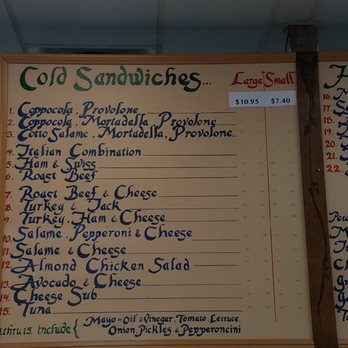 Cold Sandwiches...
Large Small
$10.95 $7.40
1. Coppocola, Provolone
2. Coppocola, Mortadella, Provolone
3. Cotto Salame, Mortadella, Provolone
4. Italian Combination
5. Ham & Swiss
6. Roast Beef
7. Roast Beef & Cheese
8. Turkey & Jack
9. Turkey, Ham & Cheese
10. Salame, Pepperoni & Cheese
11. Salame & Cheese
12. Almond Chicken Salad
13. Avocado & Cheese
14. Cheese Sub
15. Tuna
thru 15, include { Mayo-Oil & Vinegar, Tomato, Lettuce,
Onion, Pickles & Pepperoncini
16.
17.
18.
19.
20.
21.
22